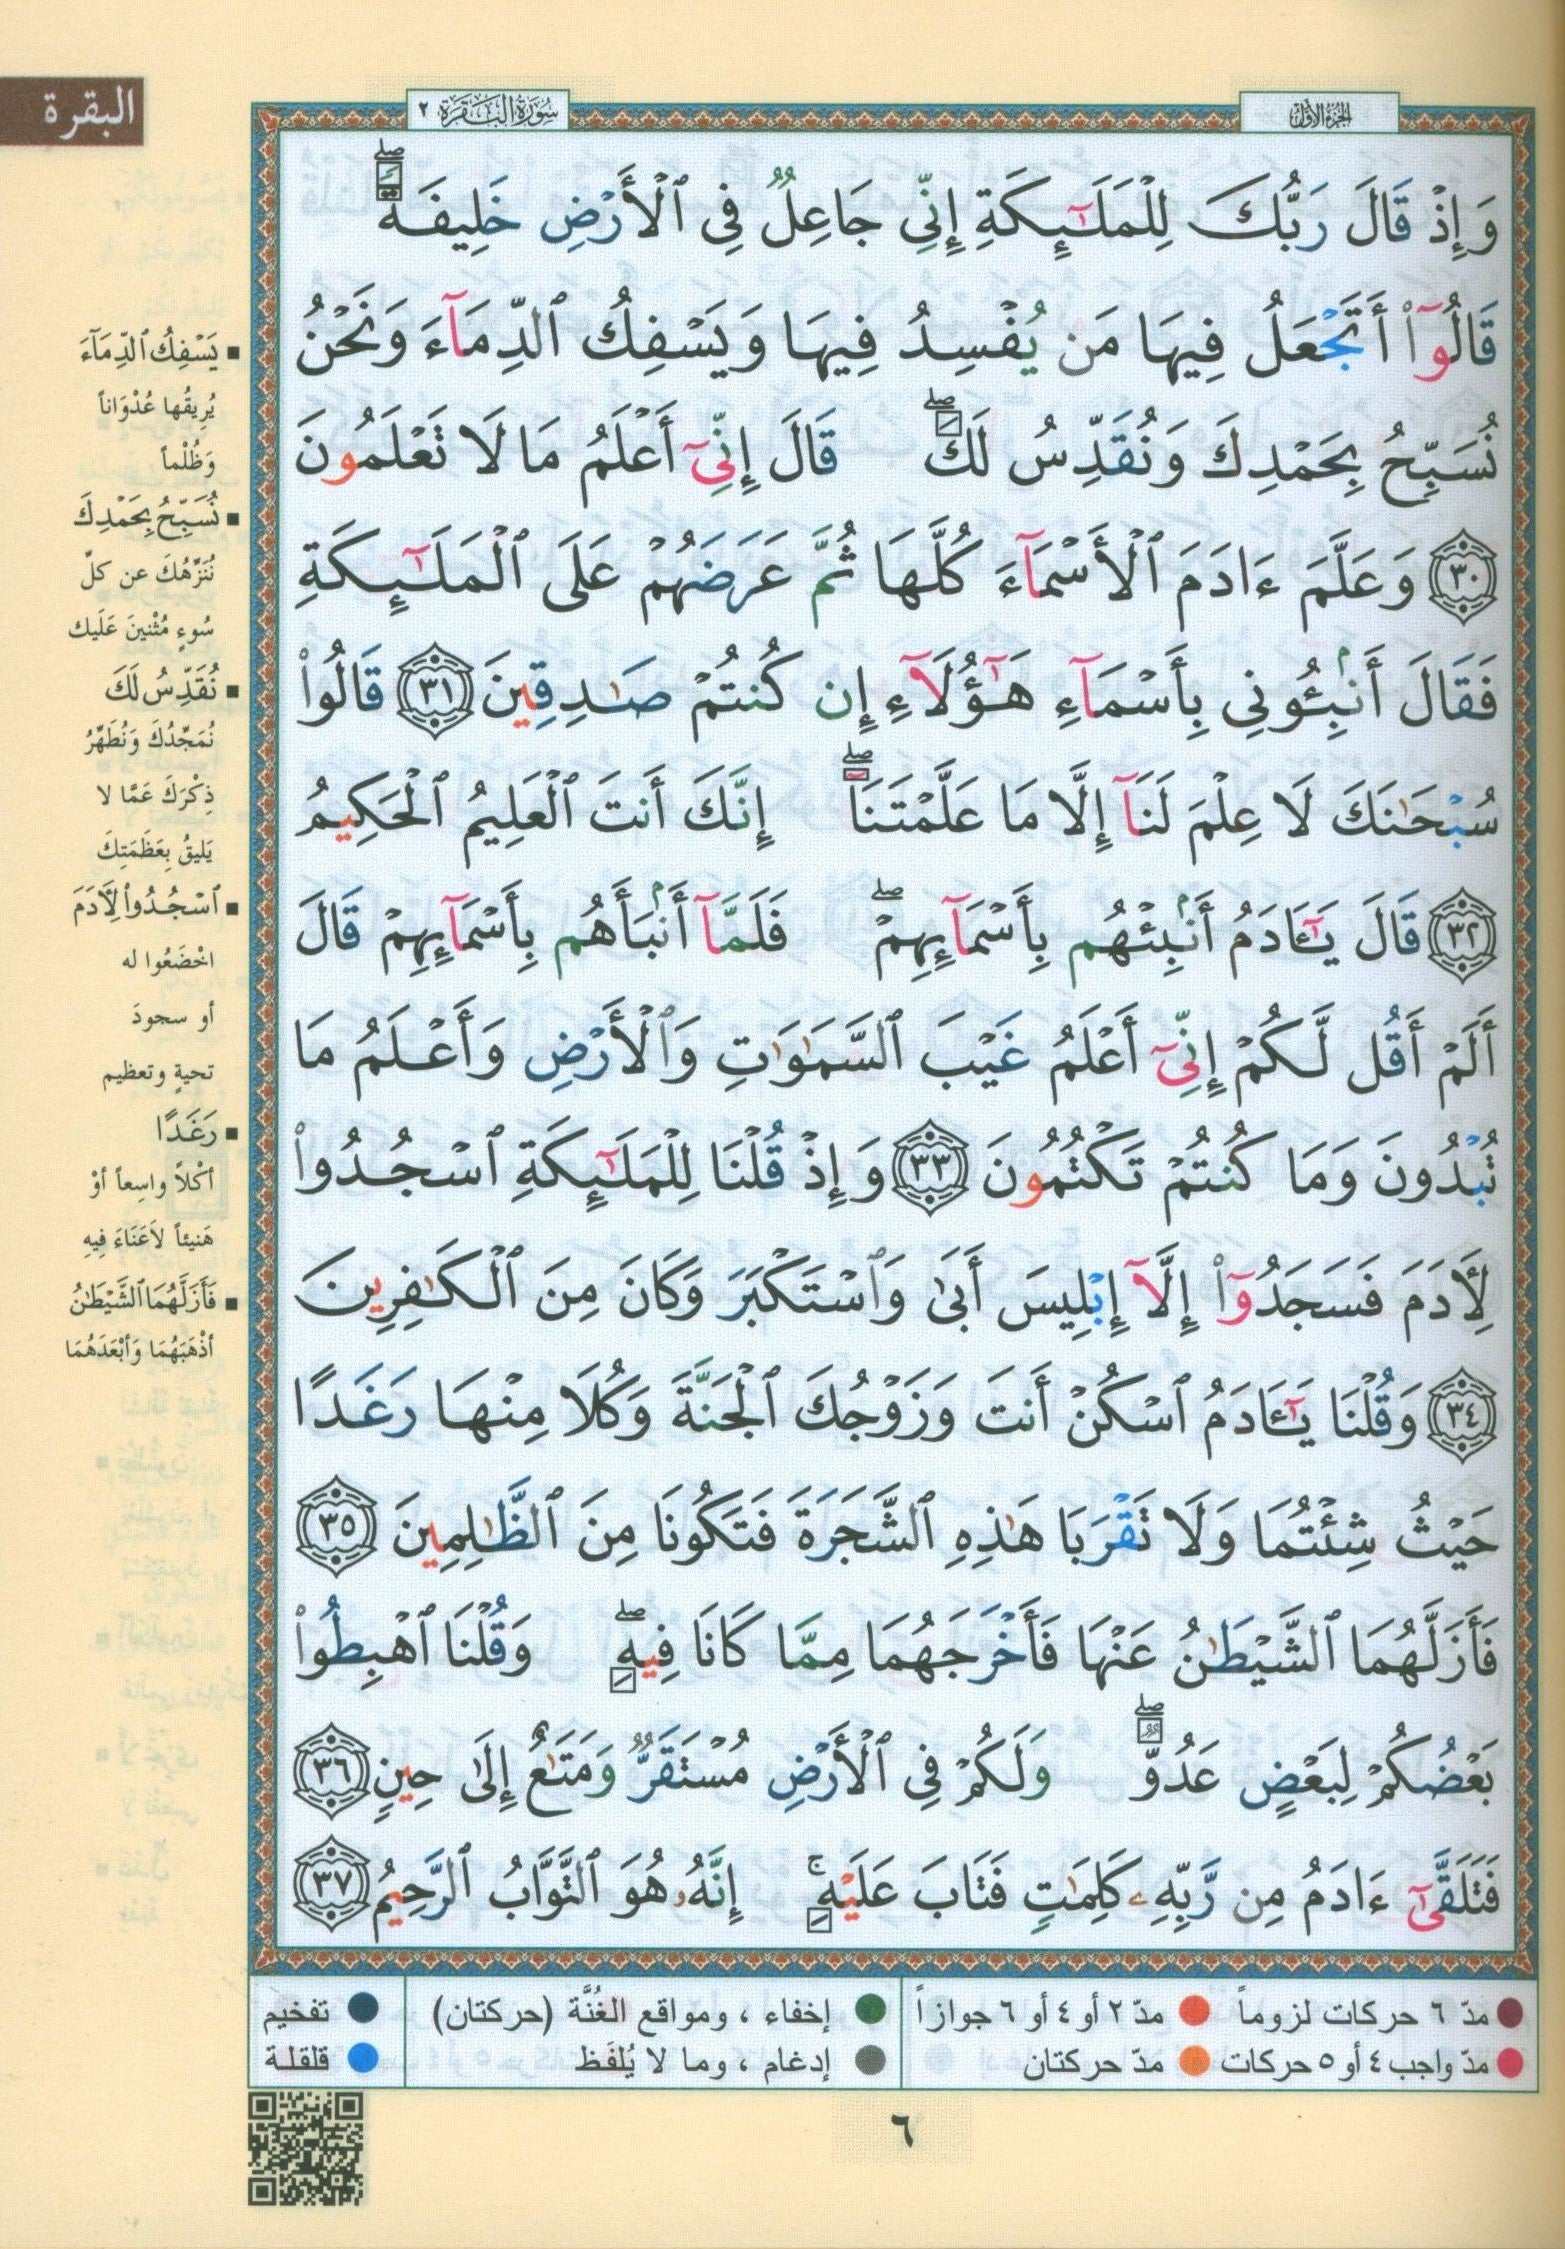 البقرة
الجزء الأول
سورة البقرة ٢
وَإِذْ قَالَ رَبُّكَ لِلْمَلَٰٓئِكَةِ إِنِّى جَاعِلٌ فِى ٱلْأَرْضِ خَلِيفَةً ۖ
قَالُوٓا۟ أَتَجْعَلُ فِيهَا مَن يُفْسِدُ فِيهَا وَيَسْفِكُ ٱلدِّمَآءَ وَنَحْنُ
نُسَبِّحُ بِحَمْدِكَ وَنُقَدِّسُ لَكَ ۖ قَالَ إِنِّىٓ أَعْلَمُ مَا لَا تَعْلَمُونَ
﴿٣٠﴾ وَعَلَّمَ ءَادَمَ ٱلْأَسْمَآءَ كُلَّهَا ثُمَّ عَرَضَهُمْ عَلَى ٱلْمَلَٰٓئِكَةِ
فَقَالَ أَنۢبِـُٔونِى بِأَسْمَآءِ هَٰٓؤُلَآءِ إِن كُنتُمْ صَٰدِقِينَ ﴿٣١﴾ قَالُوا۟
سُبْحَٰنَكَ لَا عِلْمَ لَنَآ إِلَّا مَا عَلَّمْتَنَآ ۖ إِنَّكَ أَنتَ ٱلْعَلِيمُ ٱلْحَكِيمُ
﴿٣٢﴾ قَالَ يَٰٓـَٔادَمُ أَنۢبِئْهُم بِأَسْمَآئِهِمْ ۖ فَلَمَّآ أَنۢبَأَهُم بِأَسْمَآئِهِمْ قَالَ
أَلَمْ أَقُل لَّكُمْ إِنِّىٓ أَعْلَمُ غَيْبَ ٱلسَّمَٰوَٰتِ وَٱلْأَرْضِ وَأَعْلَمُ مَا
تُبْدُونَ وَمَا كُنتُمْ تَكْتُمُونَ ﴿٣٣﴾ وَإِذْ قُلْنَا لِلْمَلَٰٓئِكَةِ ٱسْجُدُوا۟
لِـَٔادَمَ فَسَجَدُوٓا۟ إِلَّآ إِبْلِيسَ أَبَىٰ وَٱسْتَكْبَرَ وَكَانَ مِنَ ٱلْكَٰفِرِينَ
﴿٣٤﴾ وَقُلْنَا يَٰٓـَٔادَمُ ٱسْكُنْ أَنتَ وَزَوْجُكَ ٱلْجَنَّةَ وَكُلَا مِنْهَا رَغَدًا
حَيْثُ شِئْتُمَا وَلَا تَقْرَبَا هَٰذِهِ ٱلشَّجَرَةَ فَتَكُونَا مِنَ ٱلظَّٰلِمِينَ ﴿٣٥﴾
فَأَزَلَّهُمَا ٱلشَّيْطَٰنُ عَنْهَا فَأَخْرَجَهُمَا مِمَّا كَانَا فِيهِ ۖ وَقُلْنَا ٱهْبِطُوا۟
بَعْضُكُمْ لِبَعْضٍ عَدُوٌّ ۖ وَلَكُمْ فِى ٱلْأَرْضِ مُسْتَقَرٌّ وَمَتَٰعٌ إِلَىٰ حِينٍ ﴿٣٦﴾
فَتَلَقَّىٰٓ ءَادَمُ مِن رَّبِّهِۦ كَلِمَٰتٍ فَتَابَ عَلَيْهِ ۚ إِنَّهُۥ هُوَ ٱلتَّوَّابُ ٱلرَّحِيمُ ﴿٣٧﴾
يَسْفِكُ ٱلدِّمَآءَ
يُرِيقُها عُدْوَاناً
وَظُلْماً
نُسَبِّحُ بِحَمْدِكَ
نُنَزِّهُكَ عن كلِّ
سُوءٍ مُثْنينَ عَلَيك
نُقَدِّسُ لَكَ
نُمَجِّدُكَ وَنُطَهِّرُ
ذِكْرَكَ عَمَّا لا
يَليقُ بِعَظَمَتِكَ
ٱسْجُدُوا۟ لِـَٔادَمَ
اخْضَعُوا له
أو سجودَ
تحيةٍ وتعظيم
رَغَدًا
أكْلاً واسِعاً أوْ
هَنيئاً لاَعَنَاءَ فِيهِ
فَأَزَلَّهُمَا ٱلشَّيْطَٰنُ
أذْهَبَهُمَا وَأبْعَدَهُمَا
مدّ ٦ حركات لزوماً مدّ ٢ أو ٤ أو ٦ جوازاً إخفاء ، ومواقع الغُنَّة (حركتان) تفخيم
مدّ واجب ٤ أو ٥ حركات مدّ حركتان إدغام ، وما لا يُلفَظ قلقلة
٦